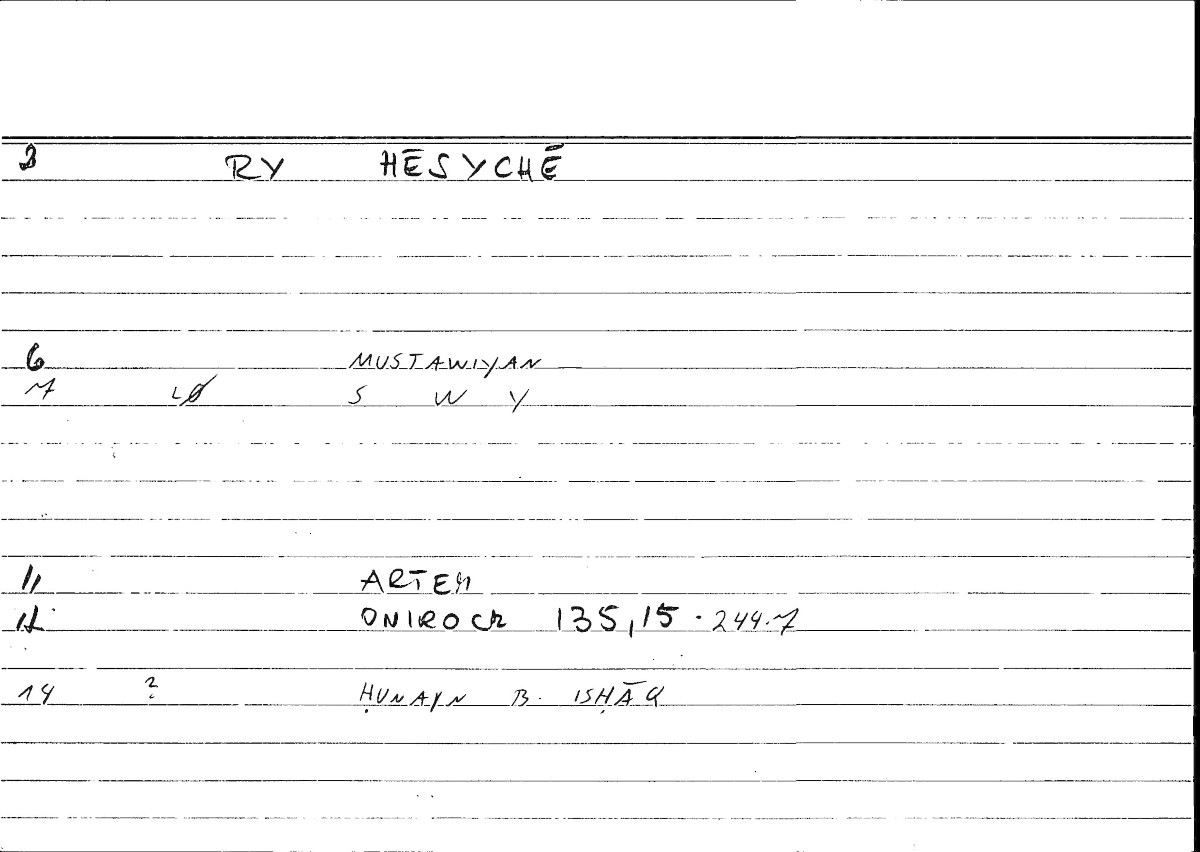 3 RY HĒSYCHĒ
6 MUSTAWIYAN
7 LØ S W Y
11 ARTEM
12 ONIROCR 135,15 · 244.7
14 ? ḤUNAYN B. ISḤĀQ